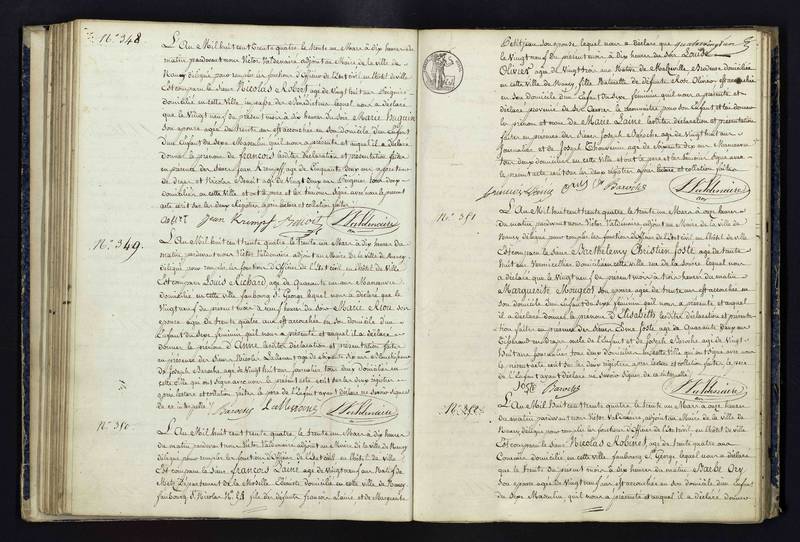 N.° 348
L'An Mil huit cent trente quatre, le trente un Mars à dix heures du
matin, pardevant nous Victor Valdenaire, adjoint au Maire de la ville de
Nancy délégué pour remplir les fonctions d'Officier de l'état civil en l'hôtel de ville
Est comparu le Sieur Nicolas Robert agé de vingt huit ans
domicilié en cette Ville lequel nous a déclaré
que le Vingt neuf du présent mois à dix heures du soir Marie Huguin
son épouse agée est accouchée en son domicile d'un Enfant
du Sexe Masculin qu'il nous a présenté et auquel il a déclaré
donner le prénom de françois lesdites déclaration et présentation faites
en présence des Sieurs Jean Krempf agé de Cinquante
et Nicolas Benoit agé de Vingt
domiciliés en cette Ville et ont le père et les témoins signé avec nous le présent
acte écrit sur les deux Registres, après lecture et collation faites
Jean Krempf Benoit VValdenaire
N.° 349.
L'An Mil huit cent trente quatre, le trente un Mars à dix heures du
matin, pardevant nous Victor Valdenaire adjoint au Maire de la ville de Nancy
délégué pour remplir les fonctions d'Officier de l'état civil, en l'hôtel de Ville
Est comparu Louis Richard agé de Quarante un ans Manoeuvre
domicilié en cette ville, faubourg St George lequel nous a déclaré que le
Vingt neuf du présent mois à neuf heures du soir Marie Kiou, son
épouse agée de trente quatre ans est accouchée en son domicile d'un
Enfant du sexe féminin, qu'il nous a présenté et auquel il a déclaré
donner le prénom d'Anne lesdites déclaration et présentation faites
en présence des Sieurs Nicolas
et Joseph Baroche agé de Vingt huit ans Journalier tous deux domiciliés en
cette Ville qui ont signé avec nous le présent acte écrit sur les deux registres
après lecture et collation faites, le père de l'enfant ayant déclaré ne savoir signer
de ce interpellé
Baroche VValdenaire
N.° 350.
L'An Mil huit cent trente quatre, le trente un Mars, à dix heures
du matin, pardevant nous Victor Valdenaire adjoint au Maire de la ville de Nancy
délégué pour remplir les fonctions d'Officier de l'état civil, en l'hôtel de ville
Est comparu le Sieur françois Lainé agé de Vingt neuf ans Natif de
Metz Département de la Moselle domicilié en cette ville de Nancy
faubourg St Nicolas N.° fils des défunts françois Lainé, et de Marguerite
Petitjean son épouse lequel nous a déclaré que
le Vingt neuf du présent mois à dix heures du soir Louise
Olivier agée de Vingt trois ans Native de domiciliée
en cette ville de Nancy, fille Naturelle de défunte Rose Olivier, est accouchée
en son domicile d'un Enfant du sexe féminin qu'il nous a présenté et
déclaré provenir de ses oeuvres le reconnaître pour son Enfant et lui donner
les prénom et nom de Marie Lainé lesdites déclaration et présentation
faites en présence des Sieurs Joseph Baroche agé de Vingt huit ans
Journalier et de Joseph Thouvenin agé de Soixante dix ans Manoeuvre
tous deux domiciliés en cette ville et ont le père et les témoins signé avec
nous le présent acte écrit sur les deux registres, après lecture et collation faites.
Baroche VValdenaire
N.° 351
L'An Mil huit cent trente quatre, le trente un Mars à onze heures
du matin, pardevant nous Victor Valdenaire, adjoint au Maire de la ville de
Nancy délégué pour remplir les fonctions d'Officier de l'état civil, en l'hôtel de ville
Est comparu le Sieur Barthelemy Christien Joste agé de trente
huit ans Vermicellier domicilié en cette ville lequel nous
a déclaré que le Vingt neuf du présent mois à trois heures du matin
Marguerite Mougeot son épouse agée de trente un ans est accouchée en
son domicile d'un Enfant du sexe féminin qu'il nous a présenté et auquel
il a déclaré donner le prénom d'Elisabeth lesdites déclaration et présenta-
tion faites en présence des Sieurs Joste, agé de Quarante deux ans
oncle de l'Enfant et de Joseph Baroche agé de Vingt-
huit ans Journalier tous deux domiciliés en cette Ville qui ont Signé avec nous
le présent acte écrit sur les deux registres, après lecture et collation faites, le père
de l'Enfant ayant déclaré ne savoir Signer de ce interpellé
Joste Baroche VValdenaire
N.° 352
L'An Mil huit cent trente quatre, le trente un Mars à onze heures
du matin, pardevant nous Victor Valdenaire, adjoint au Maire de la ville de
Nancy, délégué pour remplir les fonctions d'Officier de l'état civil, en l'hôtel de ville
Est comparu le Sieur Nicolas Robinet agé de trente quatre ans
domicilié en cette ville, faubourg St George, lequel nous a déclaré
que le trente du présent mois à dix heures du matin Barbe Ory
Son épouse agée de Vingt neuf ans est accouchée en son domicile d'un Enfant
du Sexe Masculin, qu'il nous a présenté et auquel il a déclaré donner